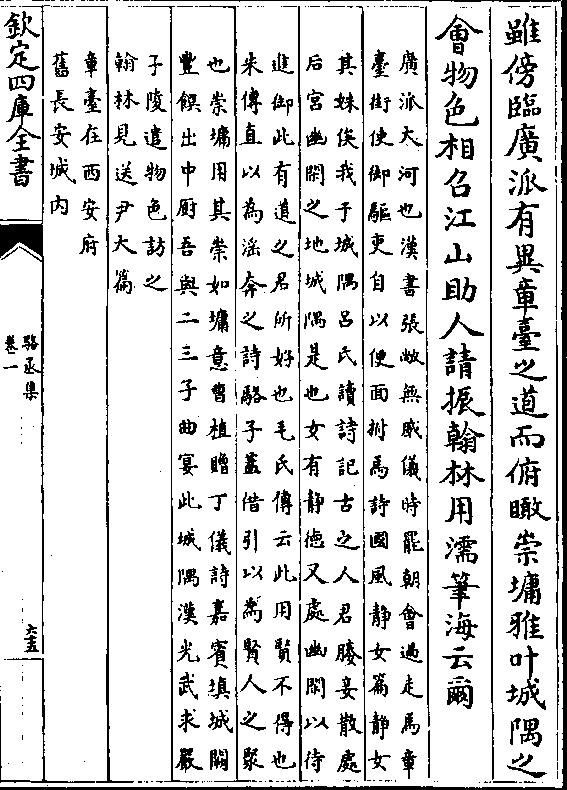 雖傍臨廣派有異章臺之道而俯瞰崇墉雅叶城隅之
會物色相召江山助人請振翰林用濡筆海云爾
廣派大河也漢書張敞無威儀時罷朝會過走馬章
臺街使御驅更自以便面拊馬詩國風靜女篇靜女
其姝俟我于城隅吕氏讀詩記古之人君媵妾散處
后宫幽閑之地城隅是也女有静徳又處幽閑以待
進御此有道之君所好也毛氏傳云此用賢不得也
朱傳直以為淫奔之詩駱子葢借引以為賢人之聚
也崇墉用其崇如墉意曹植贈丁儀詩嘉賓填城闕
豐饌出中厨吾與二三子曲宴此城隅漢光武求嚴
子陵遣物色訪之
翰林見送尹大篇
章臺在西安府
舊長安城内
欽定四庫全書
駱丞集
卷二
六五